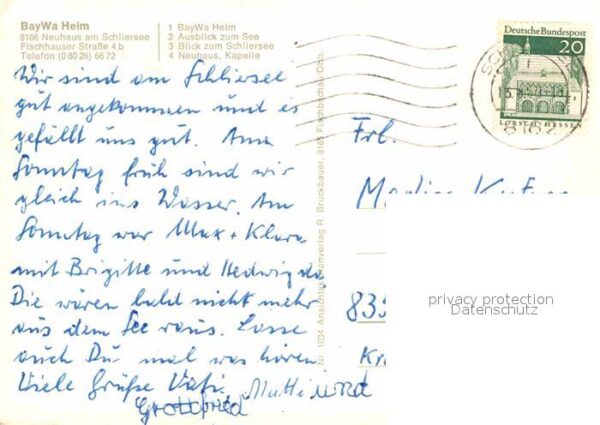 BayWa Heim
8166 Neuhaus am Schliersee
Fischhauser Straße 4 b
Telefon (0 80 26) 66 72
1 BayWa Heim
2 Ausblick zum See
3 Blick zum Schliersee
4 Neuhaus, Kapelle
Wir sind am Schliersee
gut angekommen und es
gefällt uns gut. Am
Sonntag früh sind wir
gleich ins Wasser. Am
Sonntag war Max + Klara
mit Brigitte und Hedwig da
Die wären bald nicht mehr
aus dem See raus. Lasse
auch Du mal was hören
Viele Grüße Mutti und
Gottfried
Nr. 1034 Ansichtskartenverlag R. Bruckbauer, 8165 Fischbachau/Obb.
Deutsche Bundespost
20
LORSCH/HESSEN
8162
Frl.
835
Kr
privacy protection
Datenschutz